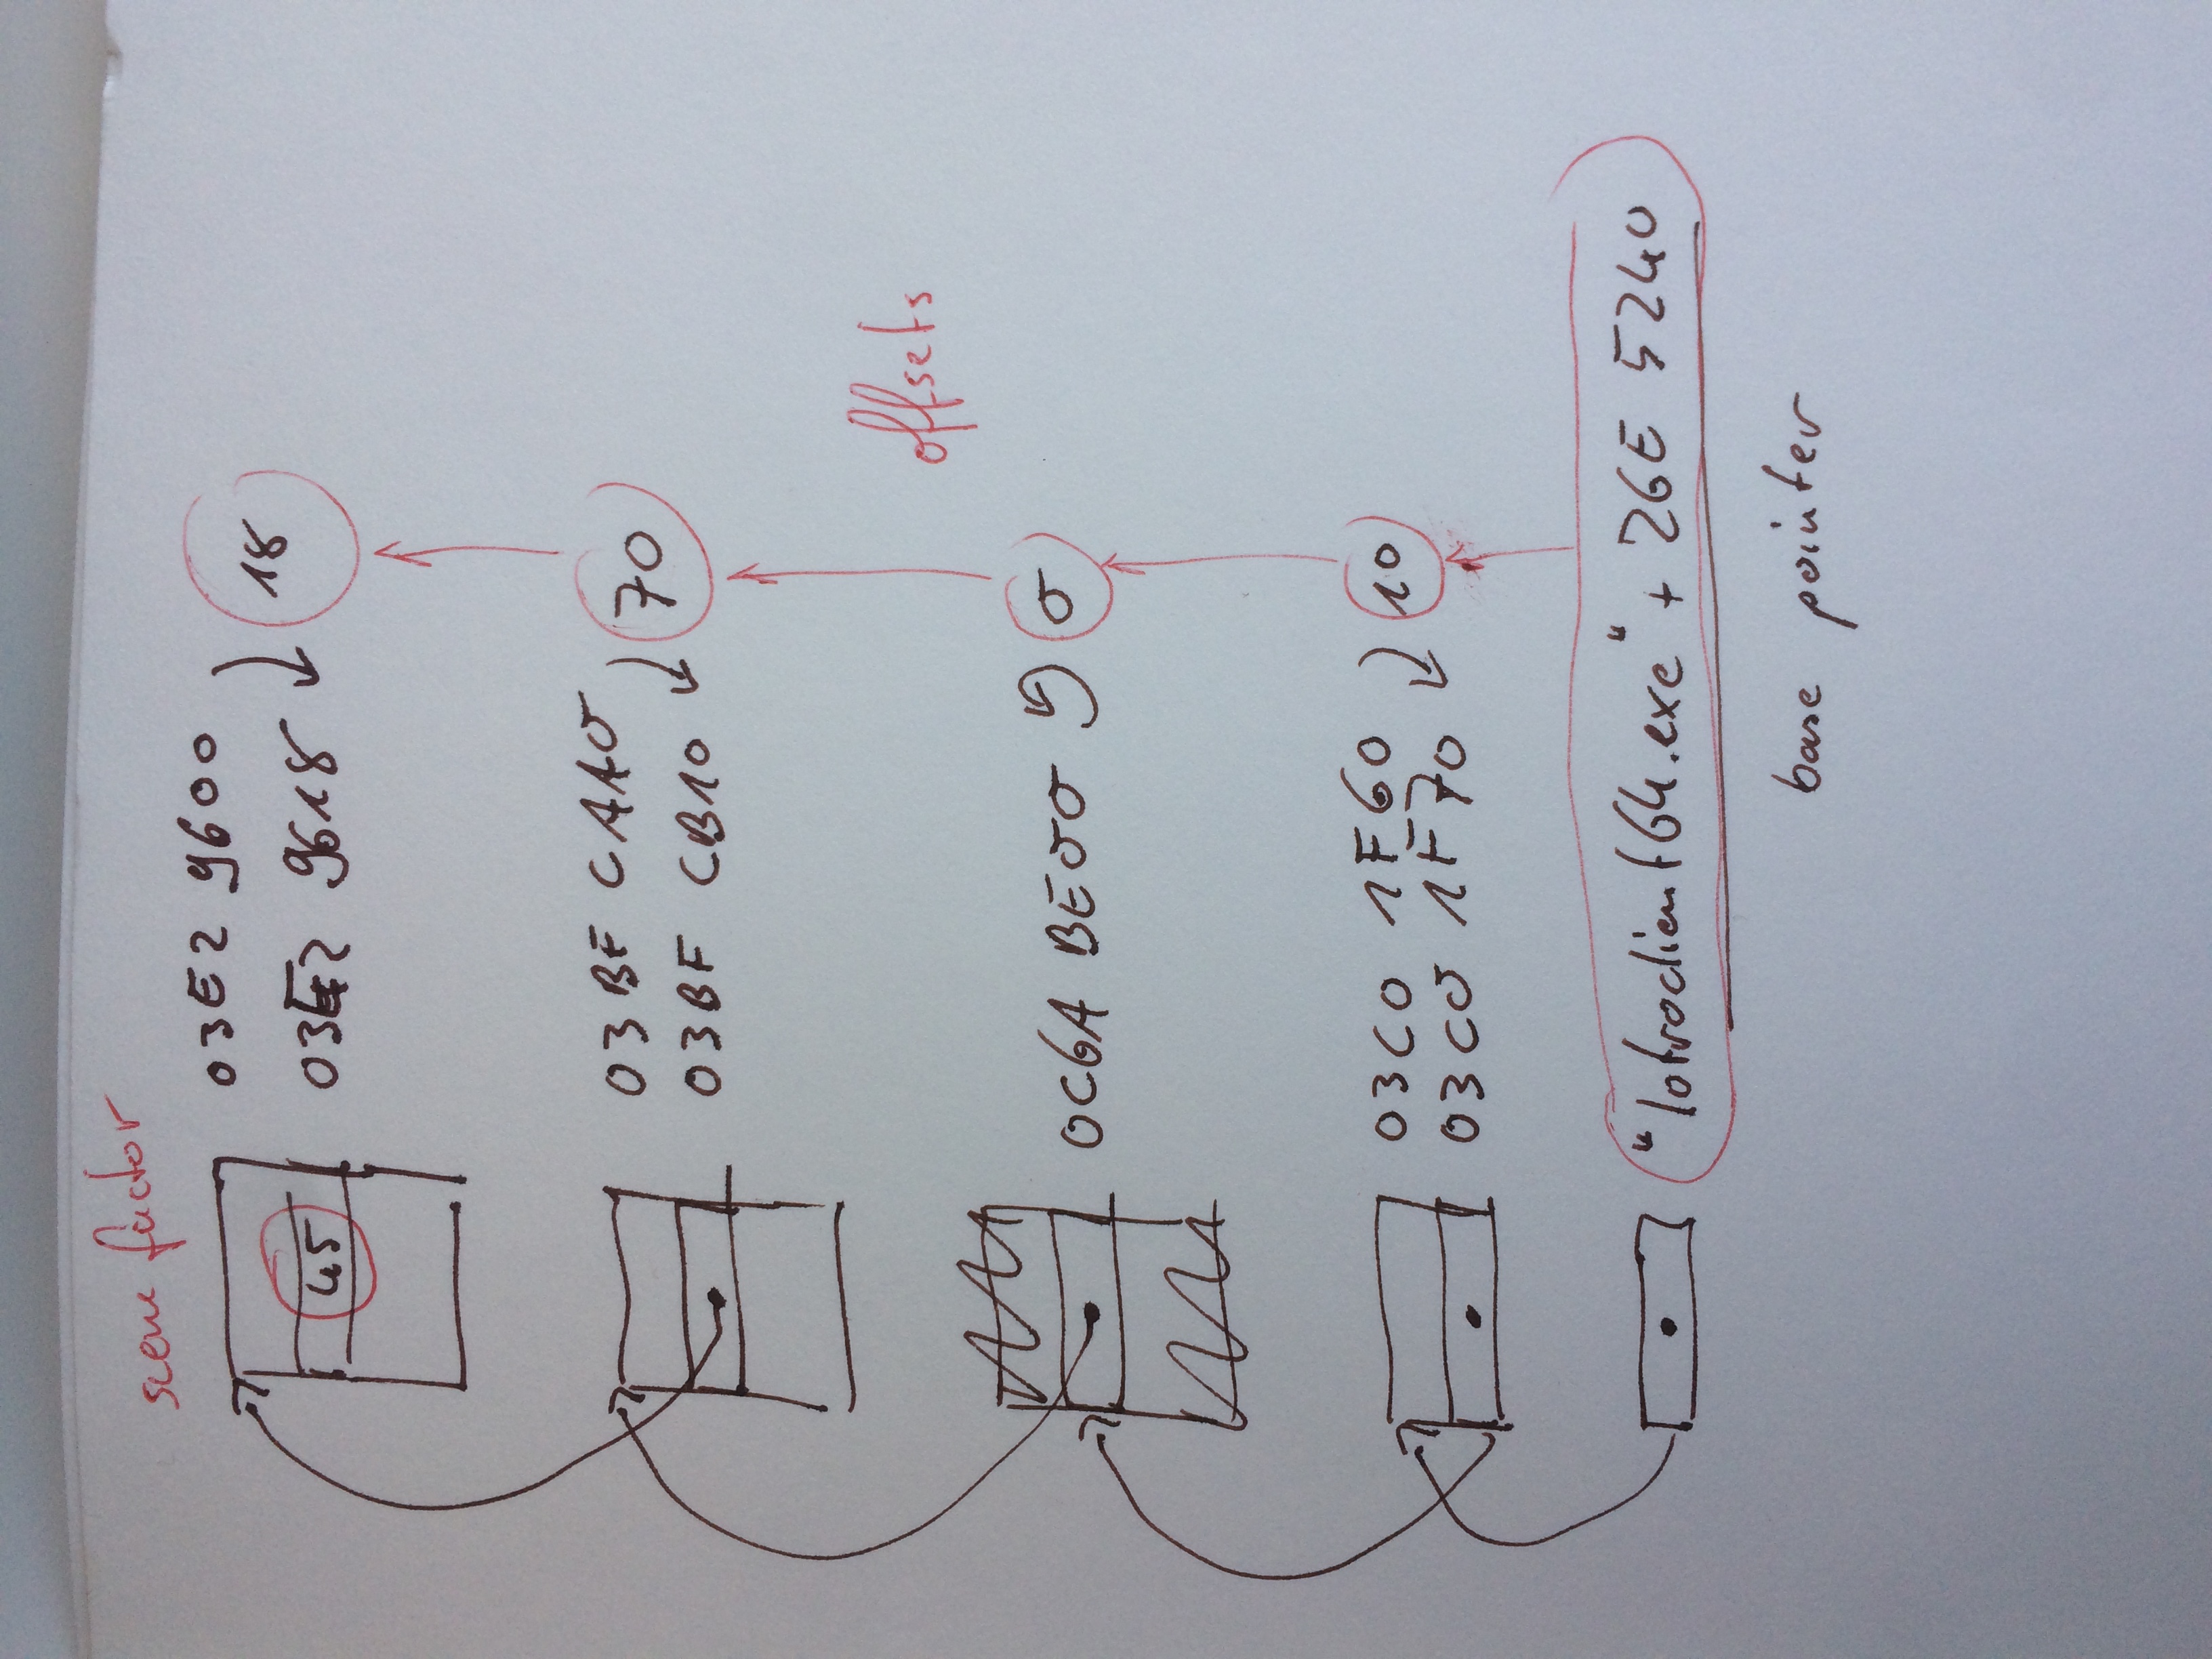 scene factor
03E2 9600
18
45
03E2 9618
03BF CAA0
70
03BF CB10
offsets
0C6A BE00
0
03C0 1F60
10
03C0 1F70
"lotroclient64.exe" + 26E 5240
base pointer